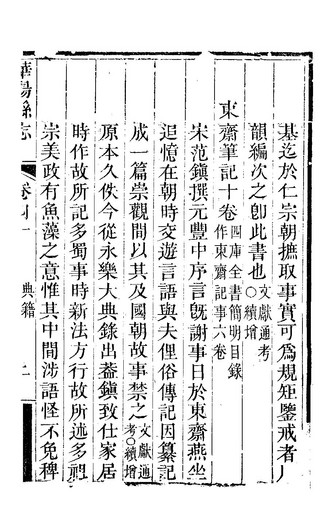 基迄於仁宗朝摭取事實可爲規矩鑒戒者
韻編次之卽此書也文獻通考○續增
東齋筆記十卷四庫全書簡明目錄作東齋記事六卷
宋范鎮撰元豐中序言既謝事日於東齋燕坐
追憶在朝時交遊言語與夫俚俗傳記因纂記
成一篇崇觀間以其及國朝故事禁之文獻通考○續增
原本久佚今從永樂大典錄出葢鎮致仕家居
時作故所記多蜀事時新法方行故所述多祖
宗美政有魚藻之意惟其中間涉語怪不免稗
華陽縣志
卷
典籍